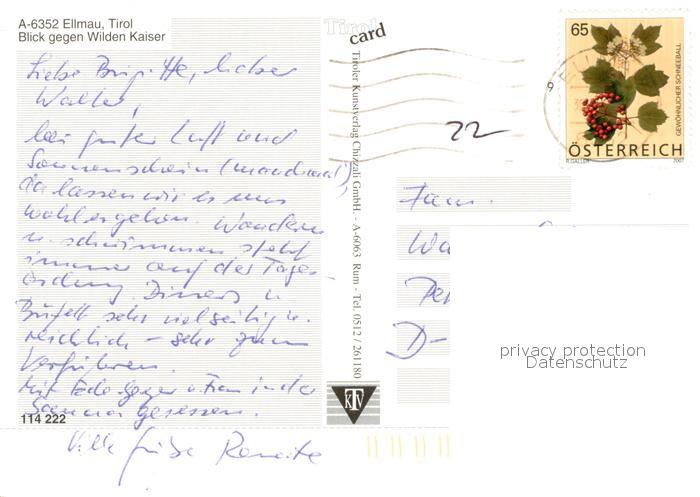 A-6352 Ellmau, Tirol
Blick gegen Wilden Kaiser
Liebe Brigitte, lieber
Walter,
bei guter Luft und
Sonnenschein (manchmal),
da lassen wir es uns
wohlergehen. Wandern
u. schwimmen steht
immer auf der Tages-
ordnung. Diners u.
Büfett sehr vielseitig u.
reichlich – sehr zum
Verführen.
Mit u. Frau in der
Sauna gesessen.
114 222
Viele Grüße Renate
Tirol
card
Tiroler Kunstverlag Chizzali GmbH. - A-6063 Rum - Tel. 0512 / 261180
KTV
22
65
GEWÖHNLICHER SCHNEEBALL
ÖSTERREICH
R.GALLER 2007
Fam.
Wa
D-
privacy protection
Datenschutz